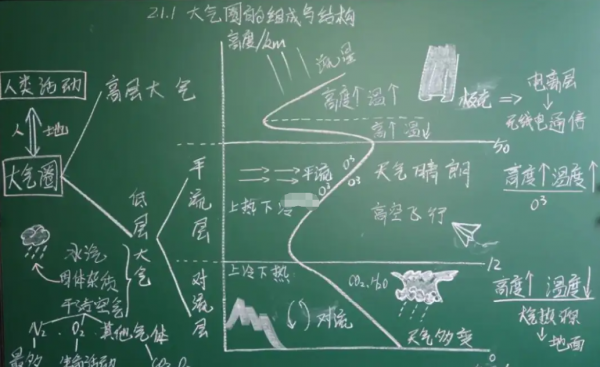 2.1.1 大气圈的组成与结构
高度/km
流星
人类活动
高层大气
高度↑温↑
极光 ⇒ 电离层
无线电通信
人 地
高↑温↓
50
大气圈
平流层
O3
O3
O3
平流
上热下冷
天气晴朗
高空飞行
高度↑温度↑
O3
低层大气
12
水汽
固体杂质
干洁空气
对流层
上冷下热
CO2.H2O
对流
天气多变
高度↑温度↓
热源
地面
N2 . O2 其他气体
0
最多
生命活动